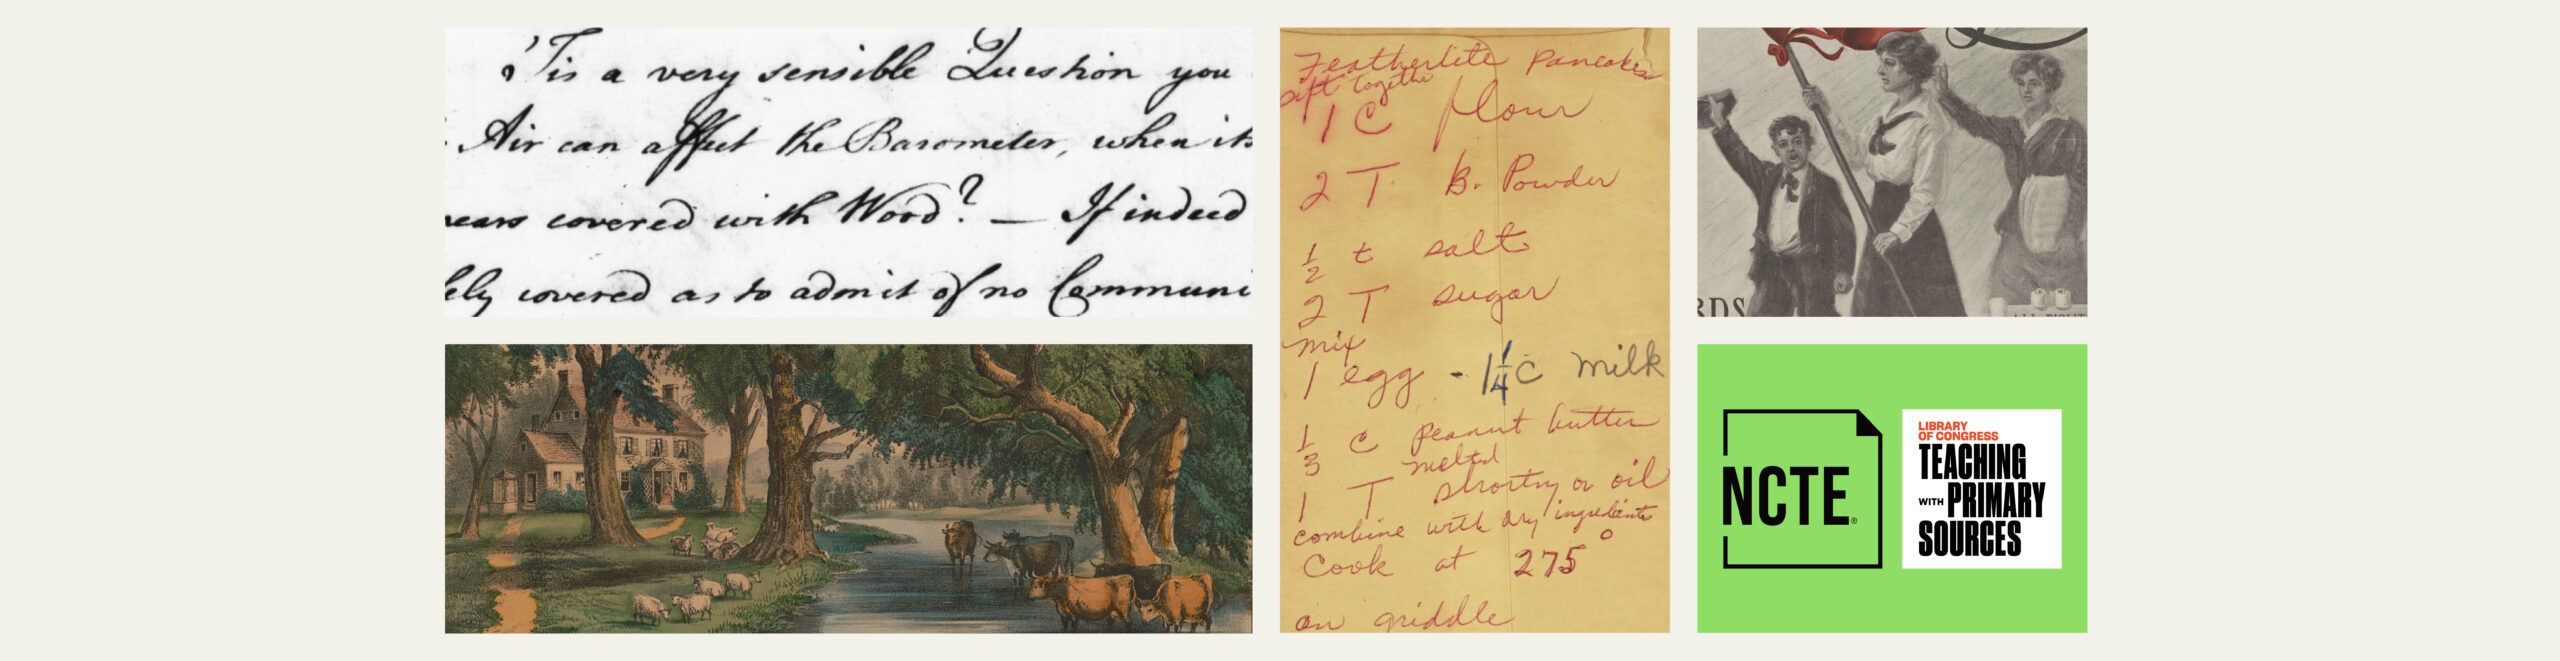 'Tis a very sensible Question you
Air can affect the Barometer, when its
covered with Wood? — If indeed
ely covered as to admit of no Communi
Featherlite Pancakes
sift together
1 C flour
2 T B. Powder
1/2 t salt
2 T sugar
mix
1 egg - 1 1/4 C milk
1/3 C peanut butter
melted
1 T shortng or oil
combine with dry ingredients
Cook at 275°
on griddle
RDS
NCTE®
LIBRARY
OF CONGRESS
TEACHING
WITH PRIMARY
SOURCES